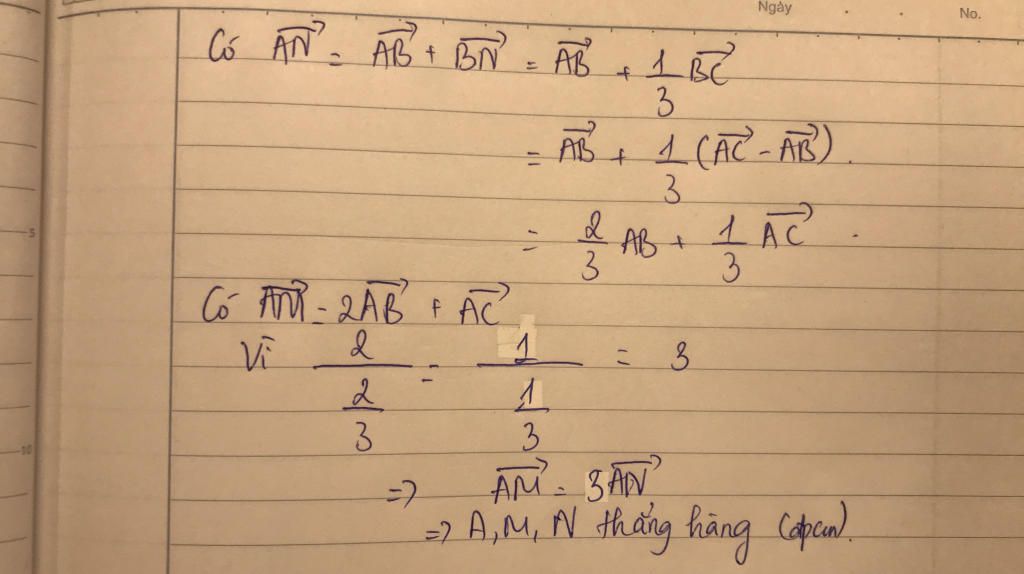 Ngày
No.
Có AN→ = AB→ + BN→ = AB→ + 1/3 BC→
= AB→ + 1/3 (AC→ - AB→).
5
= 2/3 AB + 1/3 AC→.
Có AM→ = 2AB→ + AC→
Vì 2/(2/3) = 1/(1/3) = 3
10
=> AM→ = 3AN→
=> A, M, N thẳng hàng (đpcm).